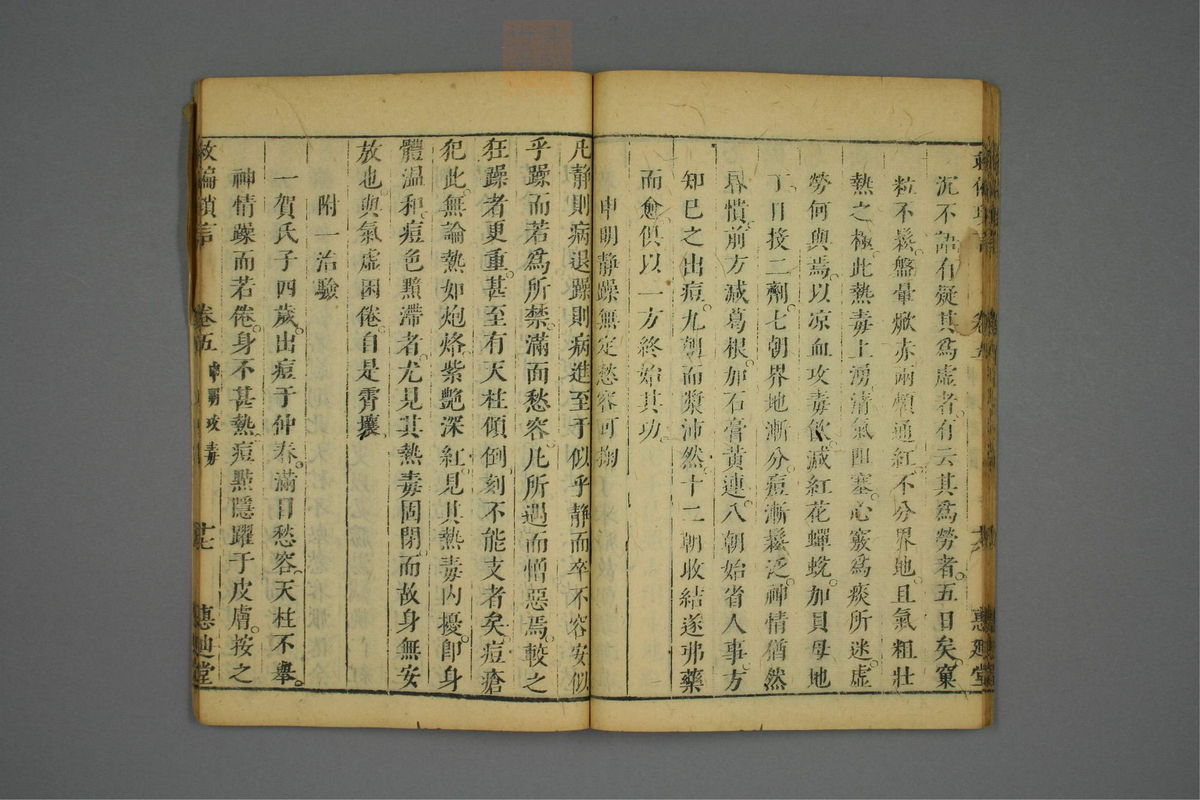 沉不語有疑其爲虛者有云其爲勞者五日矣窠
粒不鬆盤暈焮赤兩顴通紅不分界地且氣粗壯
熱之極此熱毒上湧清氣阻塞心竅爲痰所迷虛
勞何與焉以凉血攻毒飲減紅花蟬蛻加貝母地
丁日投二劑七朝界地漸分痘漸鬆泛神情猶然
昏憒前方減葛根加石膏黃連八朝始省人事方
知巳之出痘九朝而漿沛然十二朝收結遂弗藥
而愈俱以一方終始其功
申明靜躁無定愁容可掬
凡靜則病退躁則病進至于似乎靜而卒不容安似
乎躁而若爲所禁滿面愁容凡所遇而憎惡焉較之
狂躁者更重甚至有天柱傾倒刻不能支者矣痘瘡
犯此無論熱如炮烙紫艷深紅見其熱毒內擾卽身
體溫和痘色黯滯者尤見其熱毒固閉而故身無安
放也與氣虛困倦自是霄壤
附一治驗
一賀氏子四歲出痘于仲春滿目愁容天柱不舉
神情躁而若倦身不甚熱痘點隱躍于皮膚按之
救偏瑣言 卷五 申明攻毒 十七 惠廸堂